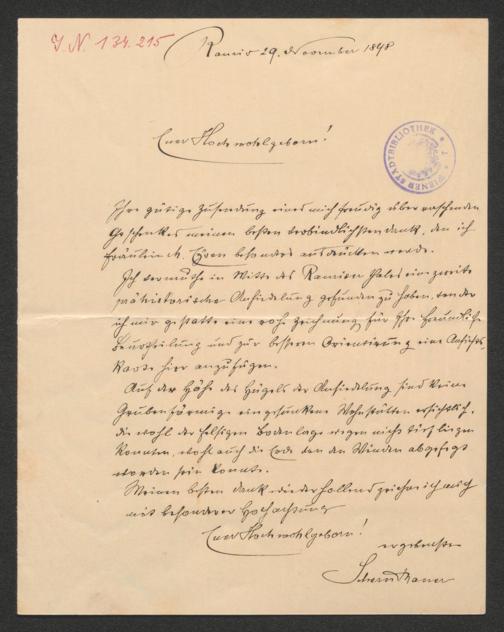 I. N. 134.215
Ramis 29. November 1898
WIENER STADTBIBLIOTHEK
Euer Hochwohlgeborn!
Ihre gütige Zusendung eines mich freudig überraschenden
Geschenkes meinen besten verbindlichsten Dank, den ich
Fräulein besonders ausdrücken werde.
Ich vermuthe in Mitte des eine zweite
prähistorische Ansiedelung gefunden zu haben, von der
ich mir gestatte eine rohe Zeichnung für Ihre freundliche
Beurtheilung und zur besseren Orientierung eine Ansichts-
karte hier anzufügen.
Auf der Höhe des Hügels der Ansiedlung sind kleine
Grubenförmige eingesunkene Wohnstätten ersichtlich,
die wohl der felsigen Bodenlage wegen nicht tief liegen
konnten, wohl auch die Erde von den Winden abgefegt
worden sein konnte.
Meinen besten Dank wiederhollend zeichne ich mich
mit besonderer Hochachtung
Euer Hochwohlgeborn!
ergebenster